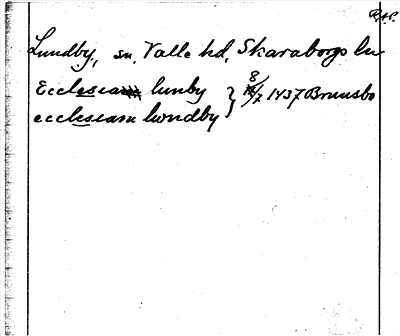 R.A.P.
Lundby, sn. Valle hd, Skaraborgs län
Ecclesia lunby } 8/7 1437 Brunsbo
ecclesiam lwndby